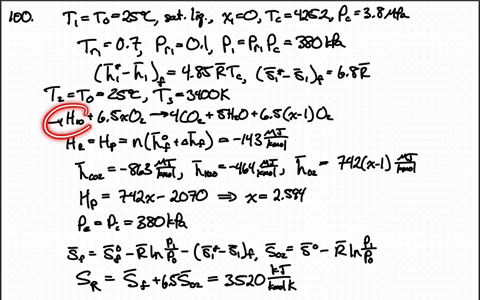 100. T₁=T₀=25°C, sat. liq., x₁=0, Tc=425.2, Pc=3.8 MPa
Tr₁=0.7, Pr₁=0.1, P₁=Pr₁Pc=380kPa
(h̄₁*-h̄₁)f=4.85R̄Tc, (s̄₁*-s̄₁)f=6.8R̄
T₂=T₀=25°C, T₃=3400K
→ H₁₀+6.5xO₂→4CO₂+5H₂O+6.5(x-1)O₂
HR=HP=n(h̄f°+Δh̄f)=-143 MJ/kmol
h̄CO2=-863 MJ/kmol, h̄H2O=-464 MJ/kmol, h̄O2=742(x-1) MJ/kmol
HP=742x-2070 ⇒ x=2.594
Pe=Pc=380kPa
S̄f=S̄f°-R̄ln P₁/P₀-(s̄₁*-s̄₁)f, S̄O2=s̄°-R̄ln P₁/P₀
SR=S̄f+6.5S̄O2=3520 kJ/kmolK